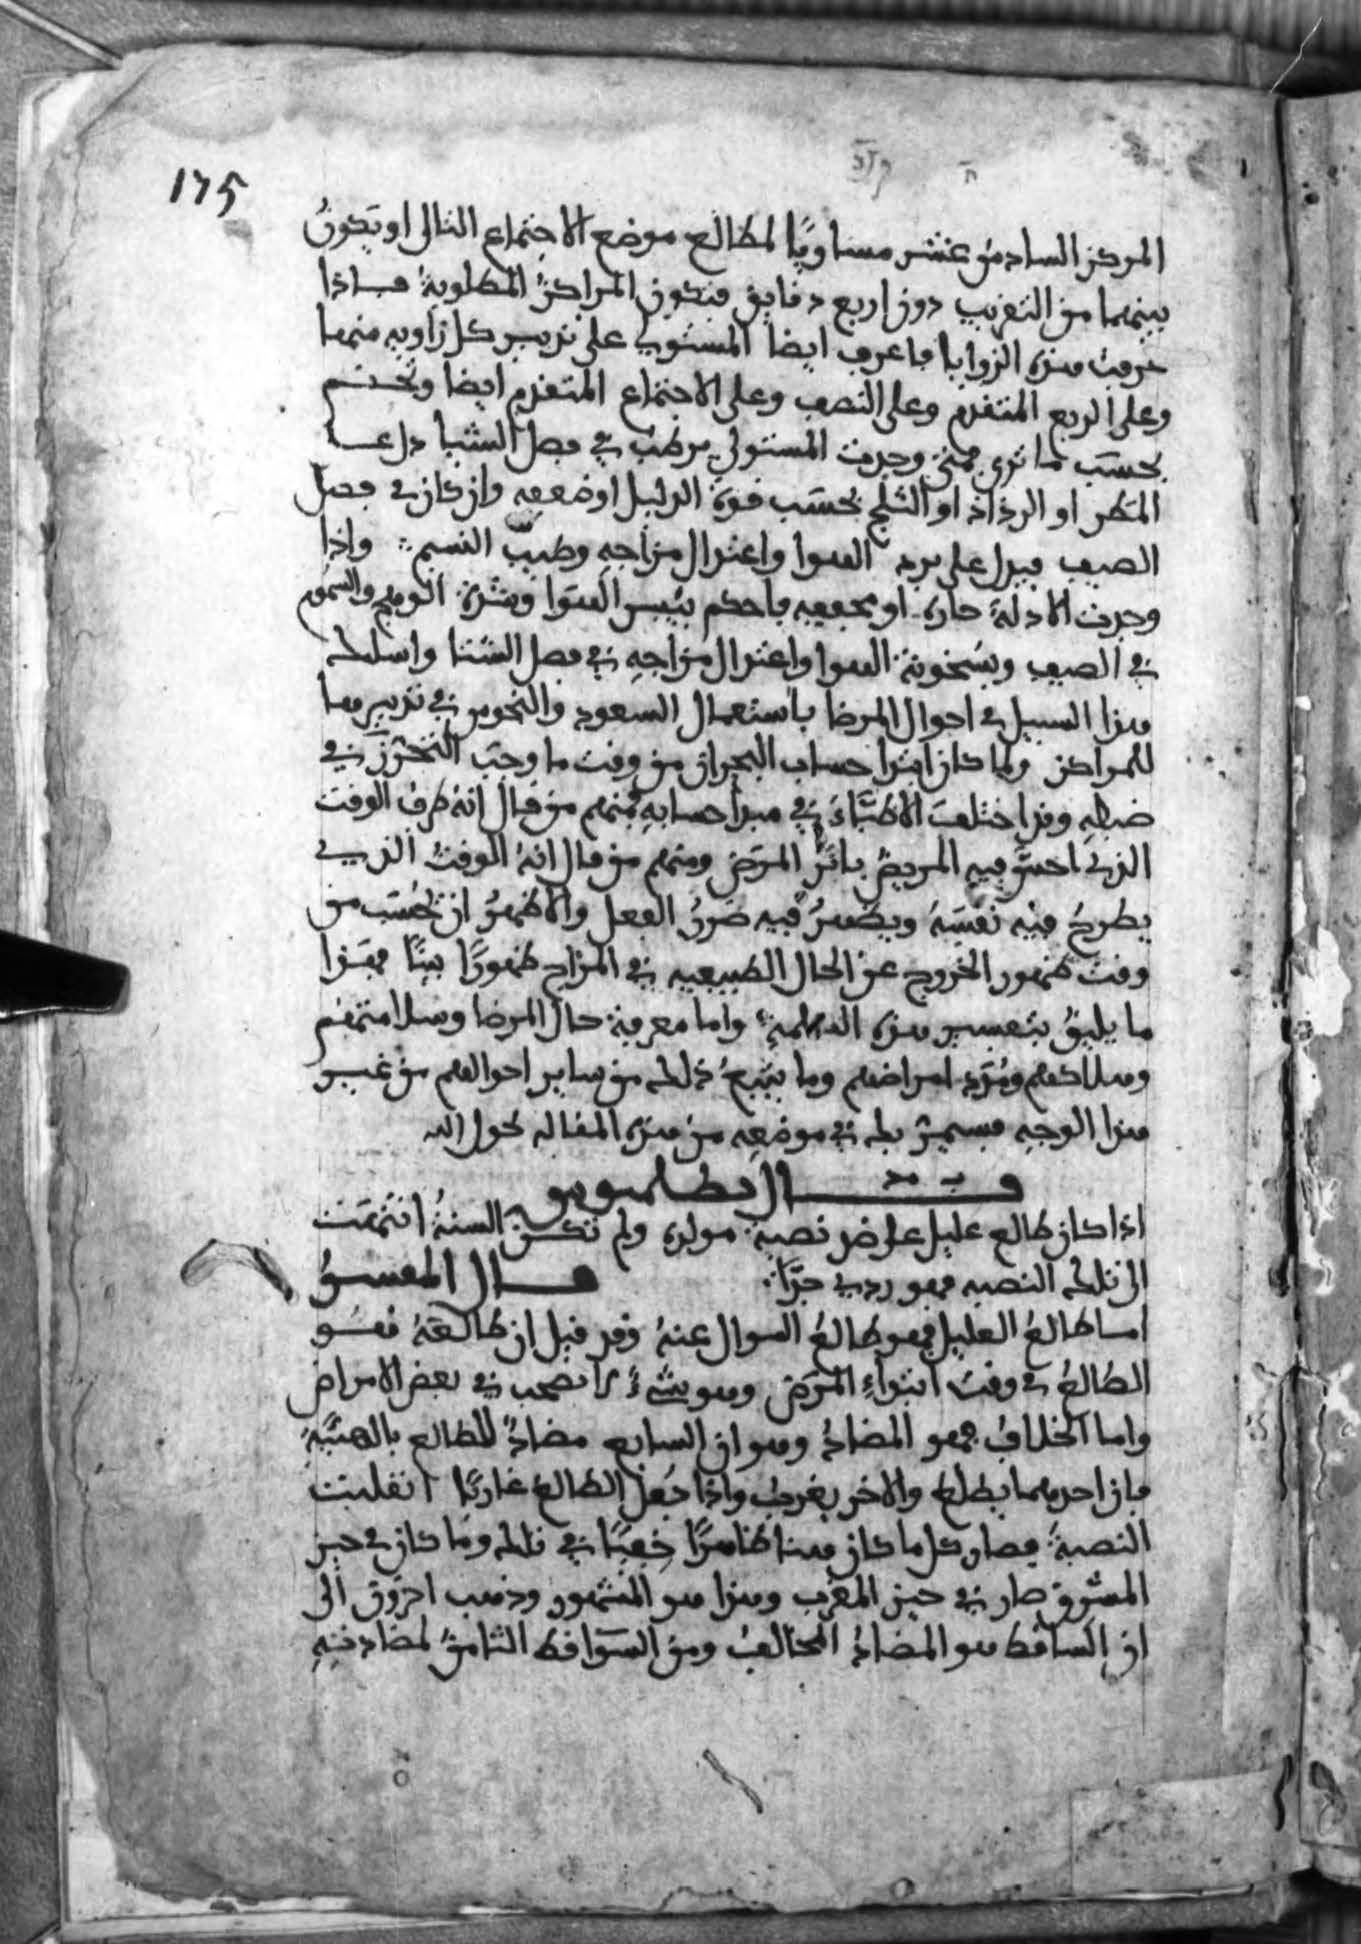 175
المركز السادس عشر مساويًا لمطالع موضع الاجتماع التالى او يكونُ
بينهما من التقريب دون اربع دقايق فتكون المراكزُ المطلوبة فاذا
عرفت هذه الزوايا فاعرف ايضا المستولى على تدبير كل زاويه منها
وعلى الربع المتقدم وعلى النصف وعلى الاجتماع المتقدم ايضا وتحكم
بحسَب ما ترى فمتى وجدت المستولى مرطب في فصل الشتا دل على
المَطر او الرذاذ او الثلج بحسَب قوة الدليل او ضعفه وان كان في فصل
الصيف فيدل على برد الهوا واعتدال مزاجه وطيب النسيم واذا
وجدت الادلة حاره او مجففه فاحكم بيبس الهوَا وشدة الوهج والسموم
في الصيف وبسَخونة الهوا واعتدال مزاجه في فصل الشتا واسلك
هذا السبيل في احوال المرضا باستعمال السعود والنحوس في تدبيرها
للمراكز ولما كان ابتدا حساب البحران من وقت ما وجَب التحرّزَ في
ضبطه وقد اختلفَ الاطبّاءُ في مبدا حسابه فمنهم من قال انهُ طرفُ الوقت
الذى احسّ فيه المريضُ باثرِ المرَض ومنهم من قال انهُ الوقتُ الذى
يطرحُ فيه نفسَهُ ويظهرُ فيه ضررُ الفعل والاظهرُ ان يحُسَب من
وقت ظهور الخروج عن الحال الطبيعيه في المزاج ظهورًا بينًا فهَذا
ما يليقُ بتفسير هذه الكلمةِ واما معرفة حال المرضا وسلامتهم
وهلاكهم ومُدد امراضهم وما يتبعُ ذلك من ساير احوالهم من غير
هذا الوجهِ فسيمرّ بك في موضعِه من هذه المقاله بحول الله
قال بطلميوس
اذا كان طالع عليل على ضد نصبة مولده ولم تكن السنةُ انتهَت
الى تلك النصبه فهو ردى جدًّا قال المفسرُ
اما طالعُ العليل فهو طالعُ السوال عنهُ وقد قيل ان طالعَهُ هُو
الطالعُ في وقت ابتداءِ المرَض وهو شىءٌ لا يصحب في بعض الامراض
واما الخلافُ فهو المضادُ وهو ان السابع مضادٌ للطالع بالهيئةِ
فان احدهما يطلع والاخر يغربُ واذا جُعل الطالعُ غاربًا انقلبت
النصبةُ فصار كل ما كان هنا ظاهرًا خفيًا في تلك وما كان في حيز
المشرق صار في حيز المغرب وهذا هو المشهور وذهب اخرون الى
ان الساقط هو المضادُ المخالف ومن السوَاقط الثامنُ لمضادتهِ